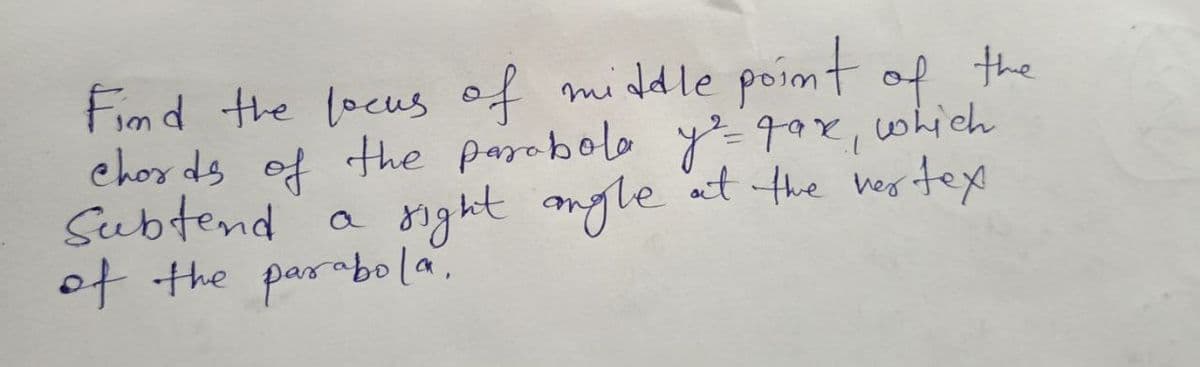 Find the locus of middle point of the
chords of the parabola y²=4ax, which
Subtend a right angle at the vertex
of the parabola.